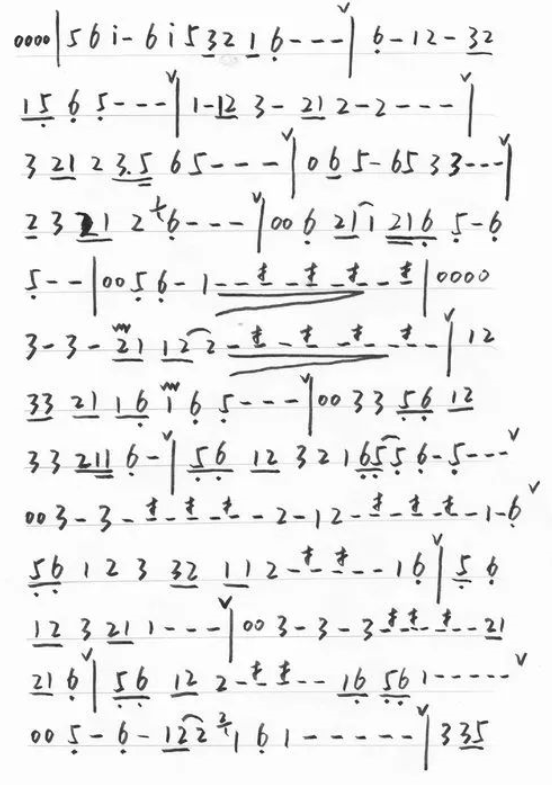 0000|56i-6i53216---|6-12-32
1565---|1-123-212-2----|
32123.565---|065-6533---|
232126---|0062112165-6
5--|0056-1-------|0000
3-3-21122-------|12
33211616165---|00335612
3321116-|56123216556-5---
003-3-----2-12-----1-6
5612332112----16|56
123211---|003-3-3----21
216|56122---16561-----
005-6-1222161-----|335